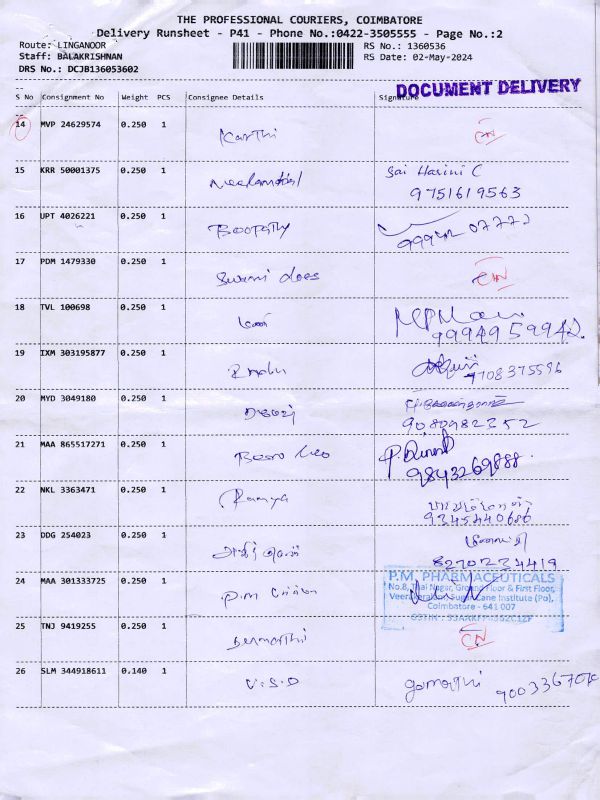 THE PROFESSIONAL COURIERS, COIMBATORE
Delivery Runsheet - P41 - Phone No.:0422-3505555 - Page No.:2
Route: LINGANOOR RS No.: 1360536
Staff: BALAKRISHNAN RS Date: 02-May-2024
DRS No.: DCJB136053602
DOCUMENT DELIVERY
S No Consignment No Weight PCS Consignee Details Signature
14 MVP 24629574 0.250 1 Karthi CN
15 KRR 50001375 0.250 1 Sai Harini C
9751619563
16 UPT 4026221 0.250 1 Boopathy
17 PDM 1479330 0.250 1 Swami CN
18 TVL 100698 0.250 1
9994959942
19 IXM 303195877 0.250 1
9708375596
20 MYD 3049180 0.250 1
9080982352
21 MAA 865517271 0.250 1
9843269888
22 NKL 3363471 0.250 1 Ramya
9345440686
23 DDG 254023 0.250 1
8270234419
24 MAA 301333725 0.250 1 P.M
P.M. PHARMACEUTICALS
No.8, Thai Nagar, Ground Floor & First Floor,
Sugar Cane Institute (Po),
Coimbatore - 641 007
25 TNJ 9419255 0.250 1 CN
26 SLM 344918611 0.140 1 V.S.D gomathi